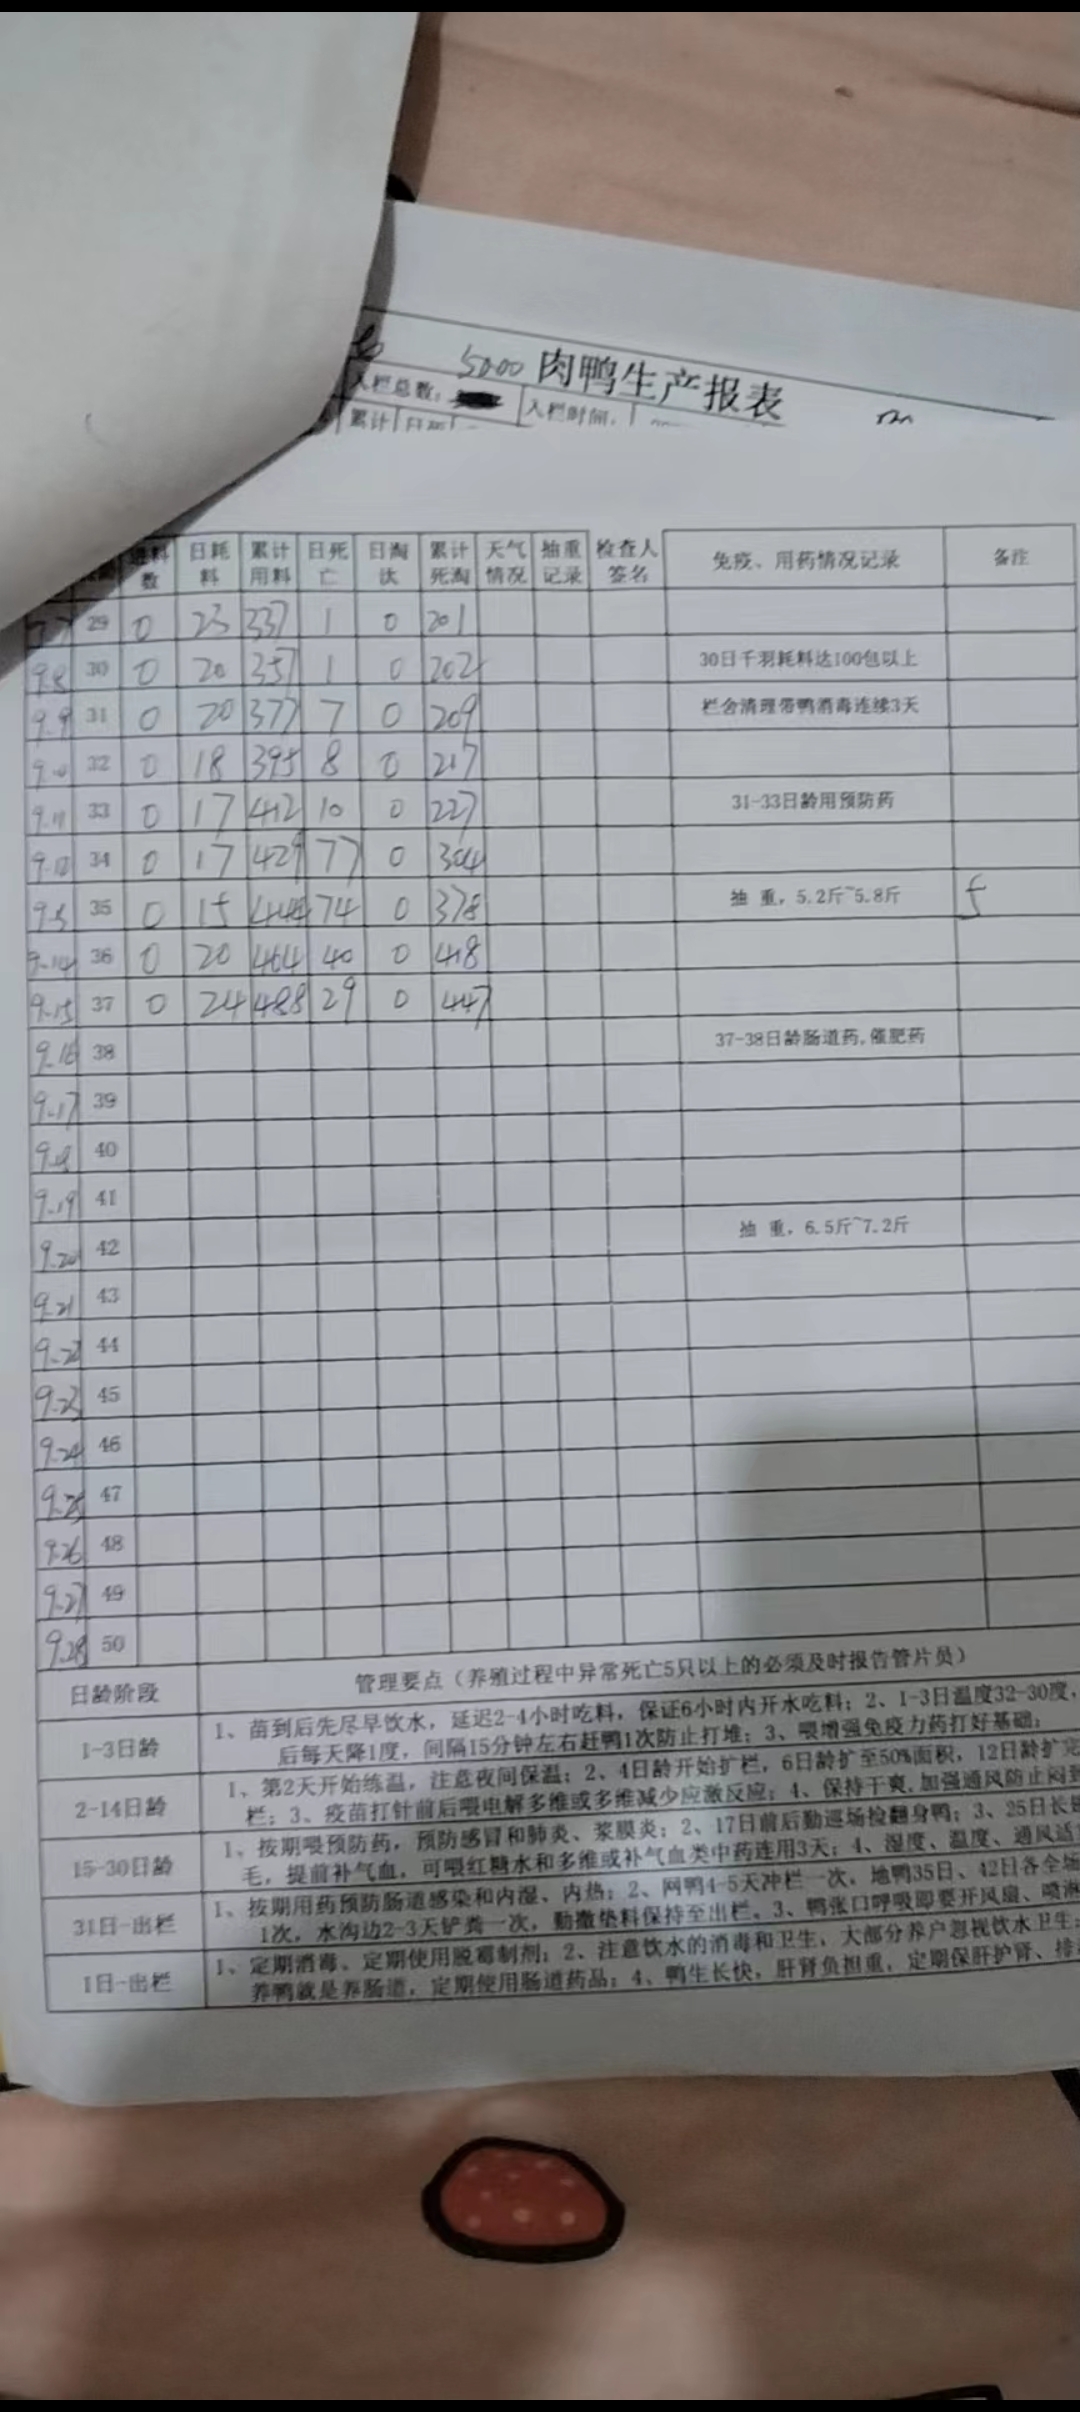 5000 肉鸭生产报表
入栏总数： 入栏时间：
累计
数 日耗料 累计用料 日死亡 日淘汰 累计死淘 天气情况 抽重记录 检查人签名 免疫、用药情况记录 备注
29 0 23 337 1 0 201
9.8 30 0 20 357 1 0 202 30日千羽耗料达100包以上
9.9 31 0 20 377 7 0 209 栏舍清理带鸭消毒连续3天
9.10 32 0 18 395 8 0 217
9.11 33 0 17 412 10 0 227 31-33日龄用预防药
9.12 34 0 17 429 77 0 304
35 0 15 444 74 0 378 抽 重，5.2斤~5.8斤 5
9.14 36 0 20 464 40 0 418
9.15 37 0 24 488 29 0 447
9.16 38 37-38日龄肠道药,催肥药
9.17 39
9.18 40
9.19 41
9.20 42 抽 重，6.5斤~7.2斤
9.21 43
9.22 44
9.23 45
9.24 46
9.25 47
9.26 48
9.27 49
9.28 50
日龄阶段 管理要点（养殖过程中异常死亡5只以上的必须及时报告管片员）
1-3日龄 1、苗到后先尽早饮水，延迟2-4小时吃料，保证6小时内开水吃料；2、1-3日温度32-30度，
后每天降1度，间隔15分钟左右赶鸭1次防止打堆；3、喂增强免疫力药打好基础；
2-14日龄 1、第2天开始练温，注意夜间保温；2、4日龄开始扩栏，6日龄扩至50%面积，12日龄扩完
栏；3、疫苗打针前后喂电解多维或多维减少应激反应；4、保持干爽,加强通风防止闷到
15-30日龄 1、按期喂预防药，预防感冒和肺炎、浆膜炎；2、17日前后勤巡场捡翻身鸭；3、25日长
毛，提前补气血，可喂红糖水和多维或补气血类中药连用3天；4、湿度、温度、通风适
31日-出栏 1、按期用药预防肠道感染和内湿、内热；2、网鸭4-5天冲栏一次，地鸭35日、42日各全场
1次，水沟边2-3天铲粪一次，勤撒垫料保持至出栏。3、鸭张口呼吸即要开风扇、喷淋
1日-出栏 1、定期消毒、定期使用脱霉制剂；2、注意饮水的消毒和卫生，大部分养户忽视饮水卫生；
养鸭就是养肠道，定期使用肠道药品；4、鸭生长快，肝肾负担重，定期保肝护肾、排